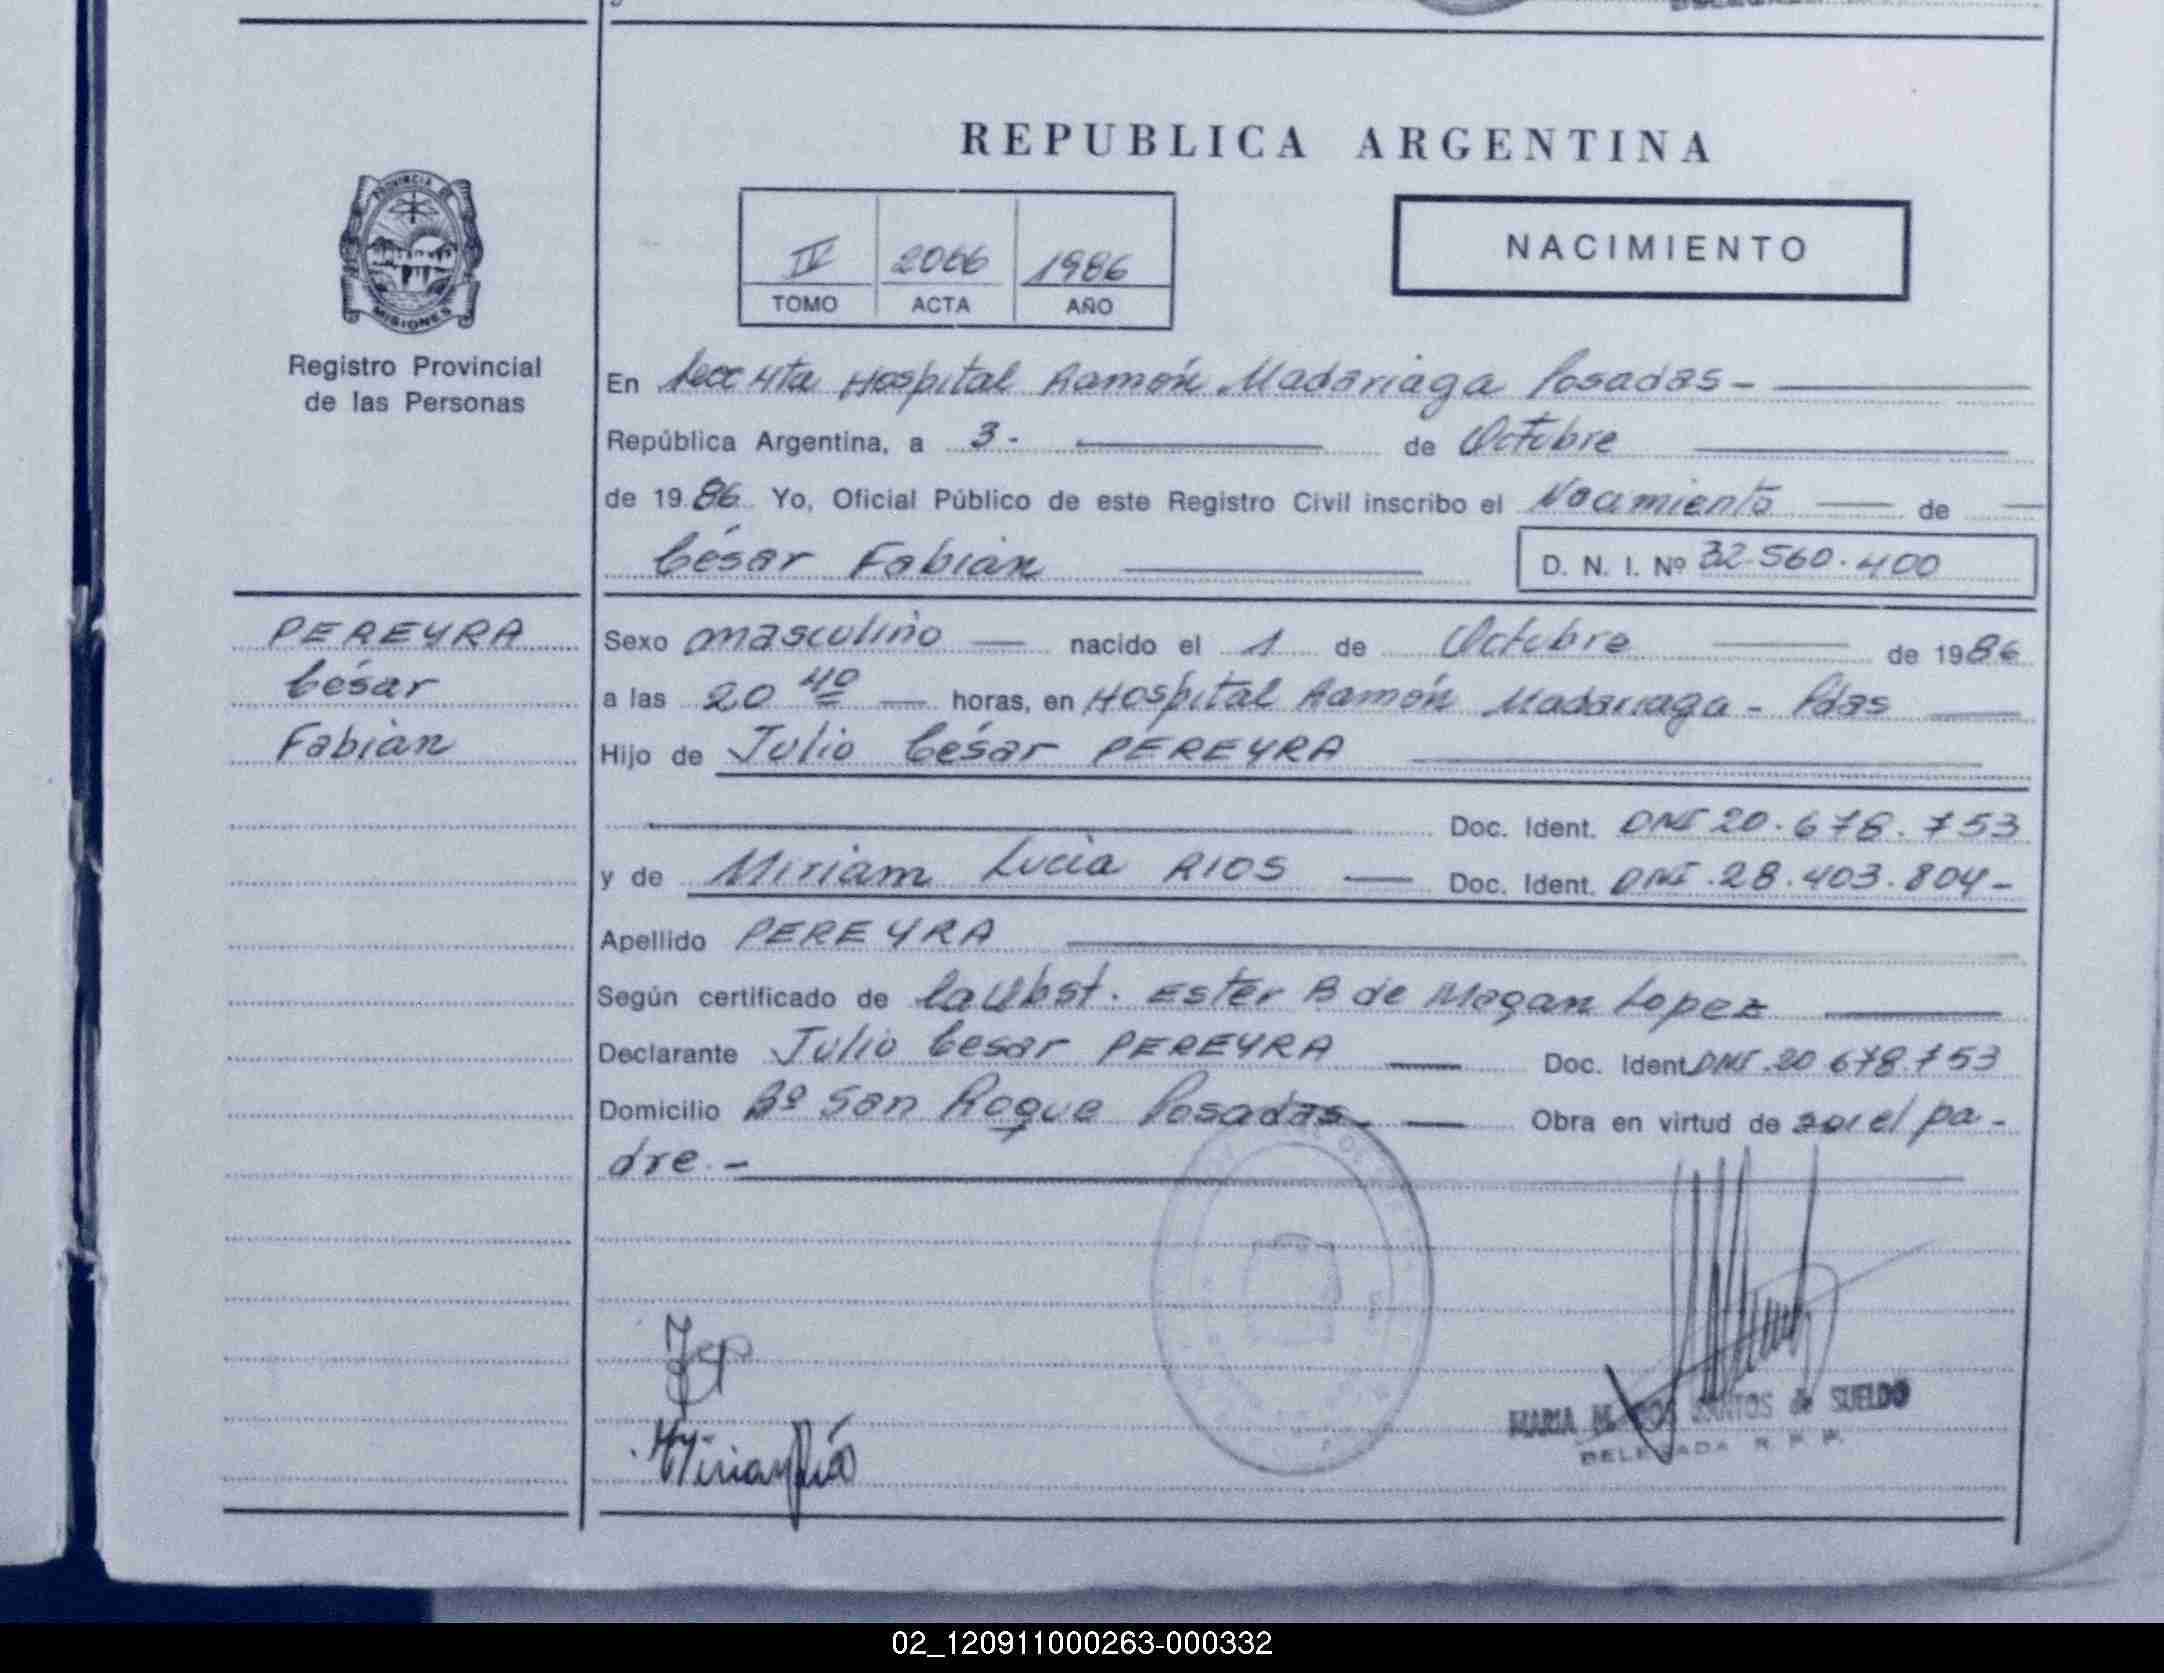 REPUBLICA ARGENTINA
PROVINCIA DE
MISIONES
Registro Provincial
de las Personas
IV 2066 1986
TOMO ACTA AÑO
NACIMIENTO
En Secc 4ta Hospital Ramón Madariaga Posadas -
República Argentina, a 3 - de Octubre
de 1986 Yo, Oficial Público de este Registro Civil inscribo el Nacimiento de
César Fabián D. N. I. Nº 32.560.400
PEREYRA
César
Fabián
Sexo masculino nacido el 1 de Octubre de 1986
a las 20 40 horas, en Hospital Ramón Madariaga - Pdas
Hijo de Julio César PEREYRA
Doc. Ident. DNI 20.678.753
y de Miriam Lucia RIOS Doc. Ident. DNI .28.403.804-
Apellido PEREYRA
Según certificado de la Obst. Ester B de Lopez
Declarante Julio Cesar PEREYRA Doc. Ident. DNI .20 678.753
Domicilio Bº San Roque Posadas Obra en virtud de el pa-
dre.-
MARIA M. DOS SANTOS de SUELDO
DELEGADA R. P. P.
02_120911000263-000332